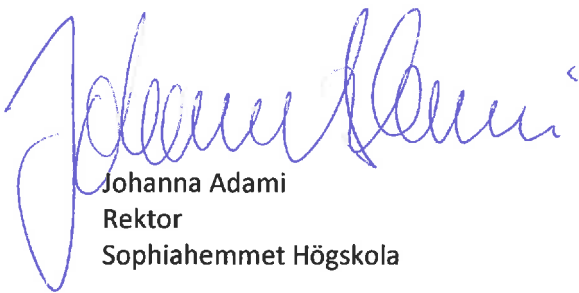 Johanna Adami
Johanna Adami
Rektor
Sophiahemmet Högskola